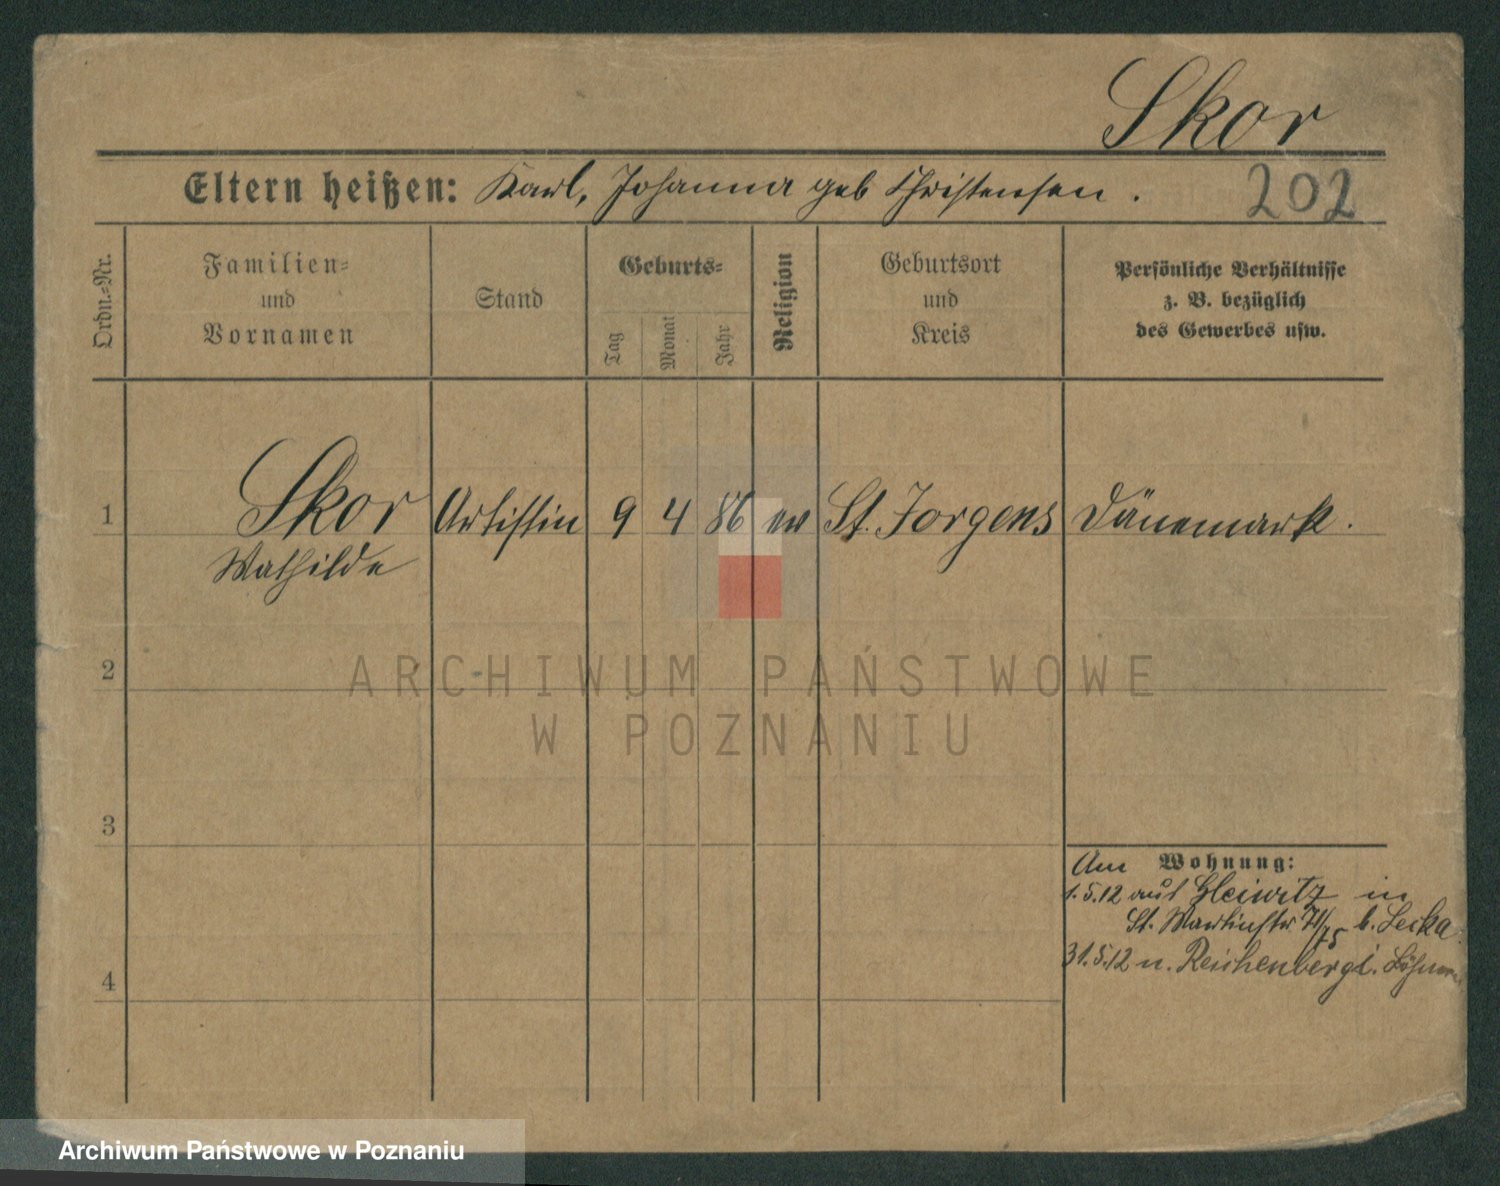 Skor
Eltern heißen: Karl, Johanna geb Christensen.
202
Ordn.=Nr.
Familien=
und
Vornamen
Stand
Geburts=
Tag
Monat
Jahr
Religion
Geburtsort
und
Kreis
Persönliche Verhältnisse
z. B. bezüglich
des Gewerbes usw.
1 Skor Artistin 9 4 86 ev St. Jorgens Dänemark.
Mathilde
2
3
4
Am Wohnung:
1.5.12 aus Gleiwitz in
St. Martinstr 74/75 b. Leska
31.5.12 n. Reichenberg i. Böhmen
ARCHIWUM PAŃSTWOWE
W POZNANIU
Archiwum Państwowe w Poznaniu